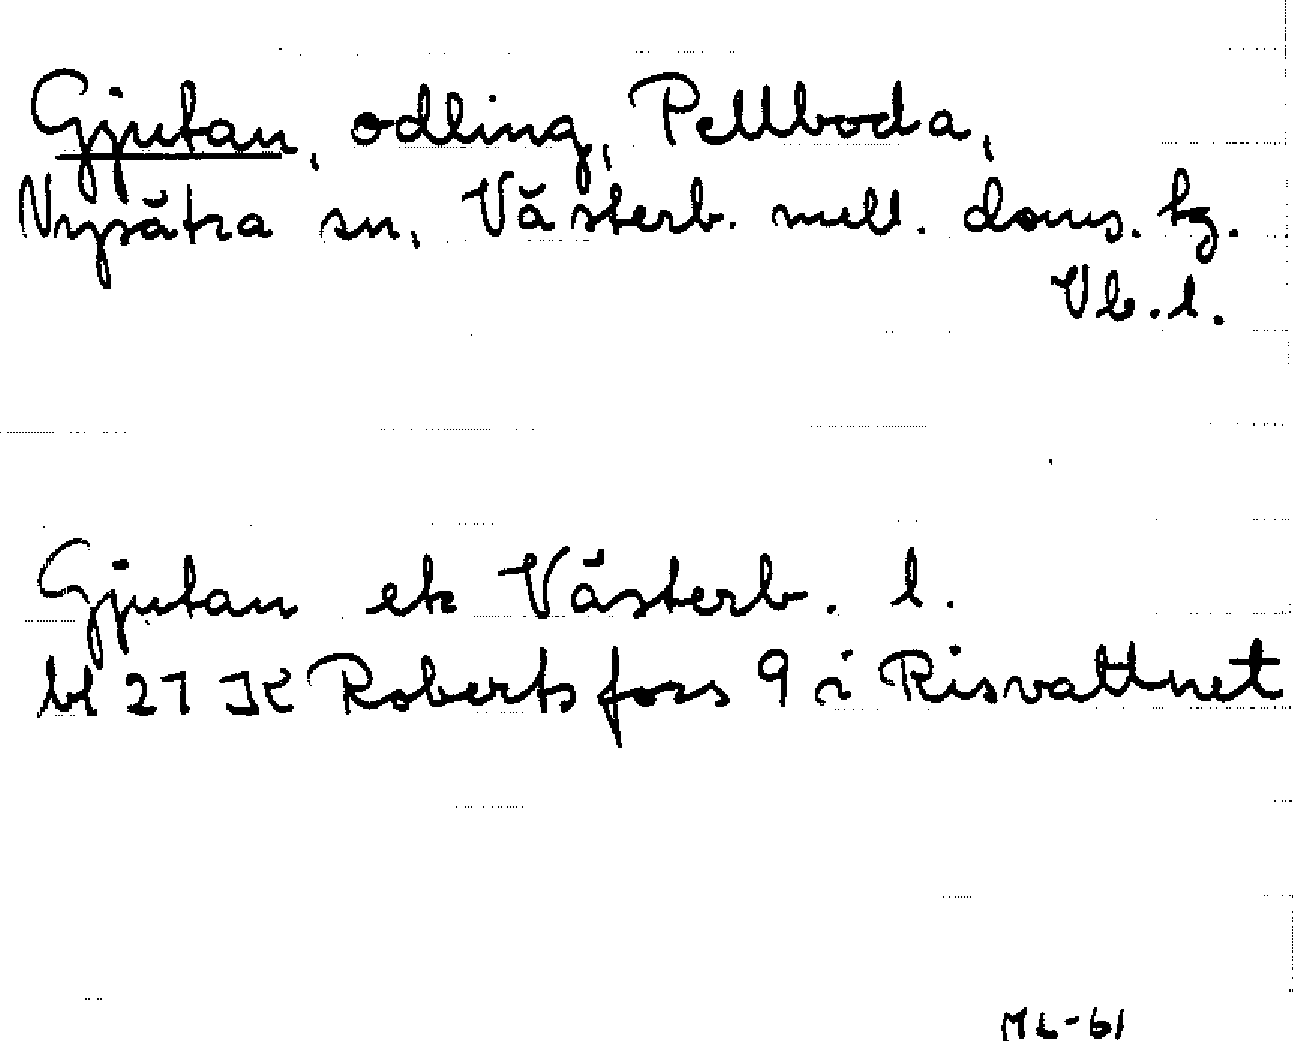 Gjutan, odling, Pellboda,
Nysätra sn, Västerb. mell. doms. tg.
Vb. l.
Gjutan ek Västerb. l.
bl 21 JK Robertsfors 9 i Risvattnet
ML-61